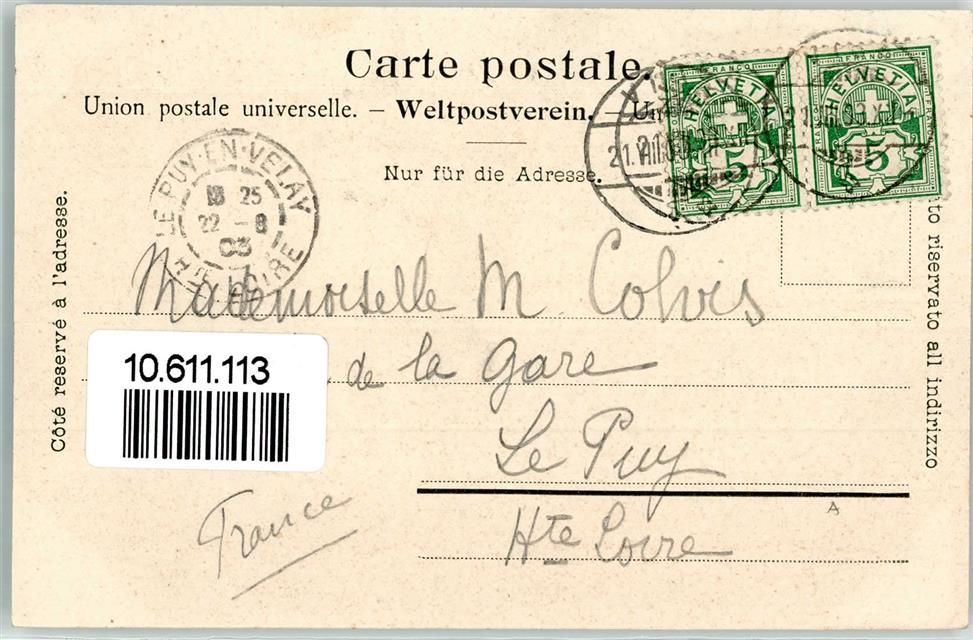 Carte postale.
Union postale universelle. – Weltpostverein. – Un
Nur für die Adresse.
FRANCO
HELVETIA
5
FRANCO
HELVETIA
5
21.VIII.03.
LE PUY-EN-VELAY
25
22 - 8
03
HTE LOIRE
Côté reservé à l'adresse.
to riservato all indirizzo
Mademoiselle M. Colvis
10.611.113
de la Gare
Le Puy
A
France
Hte Loire